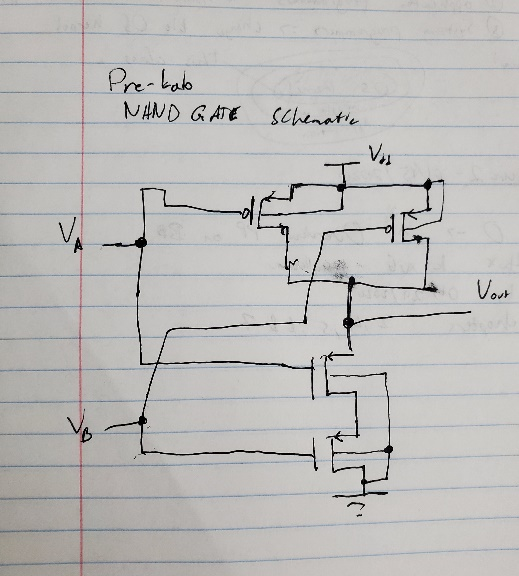 Pre-Lab
NAND GATE Schematic
Vdd
VA
Vout
VB